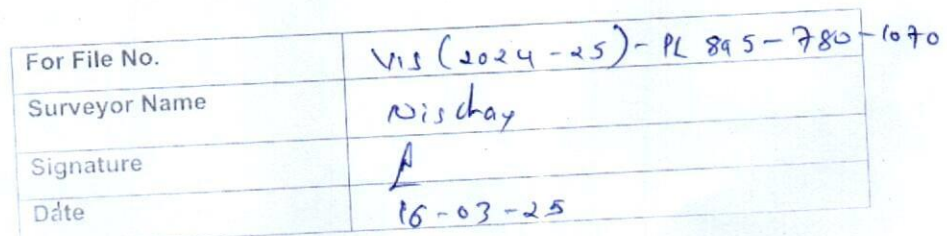 For File No. VIS (2024-25)- PL 895-780-1070
Surveyor Name Nischay
Signature
Date 16-03-25